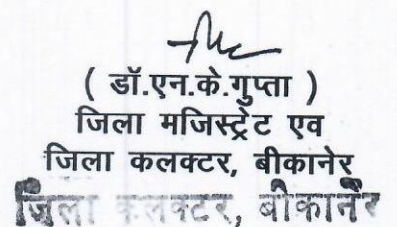 ( डॉ.एन.के.गुप्ता )
जिला मजिस्ट्रेट एव
जिला कलक्टर, बीकानेर
जिला कलक्टर, बीकानेर